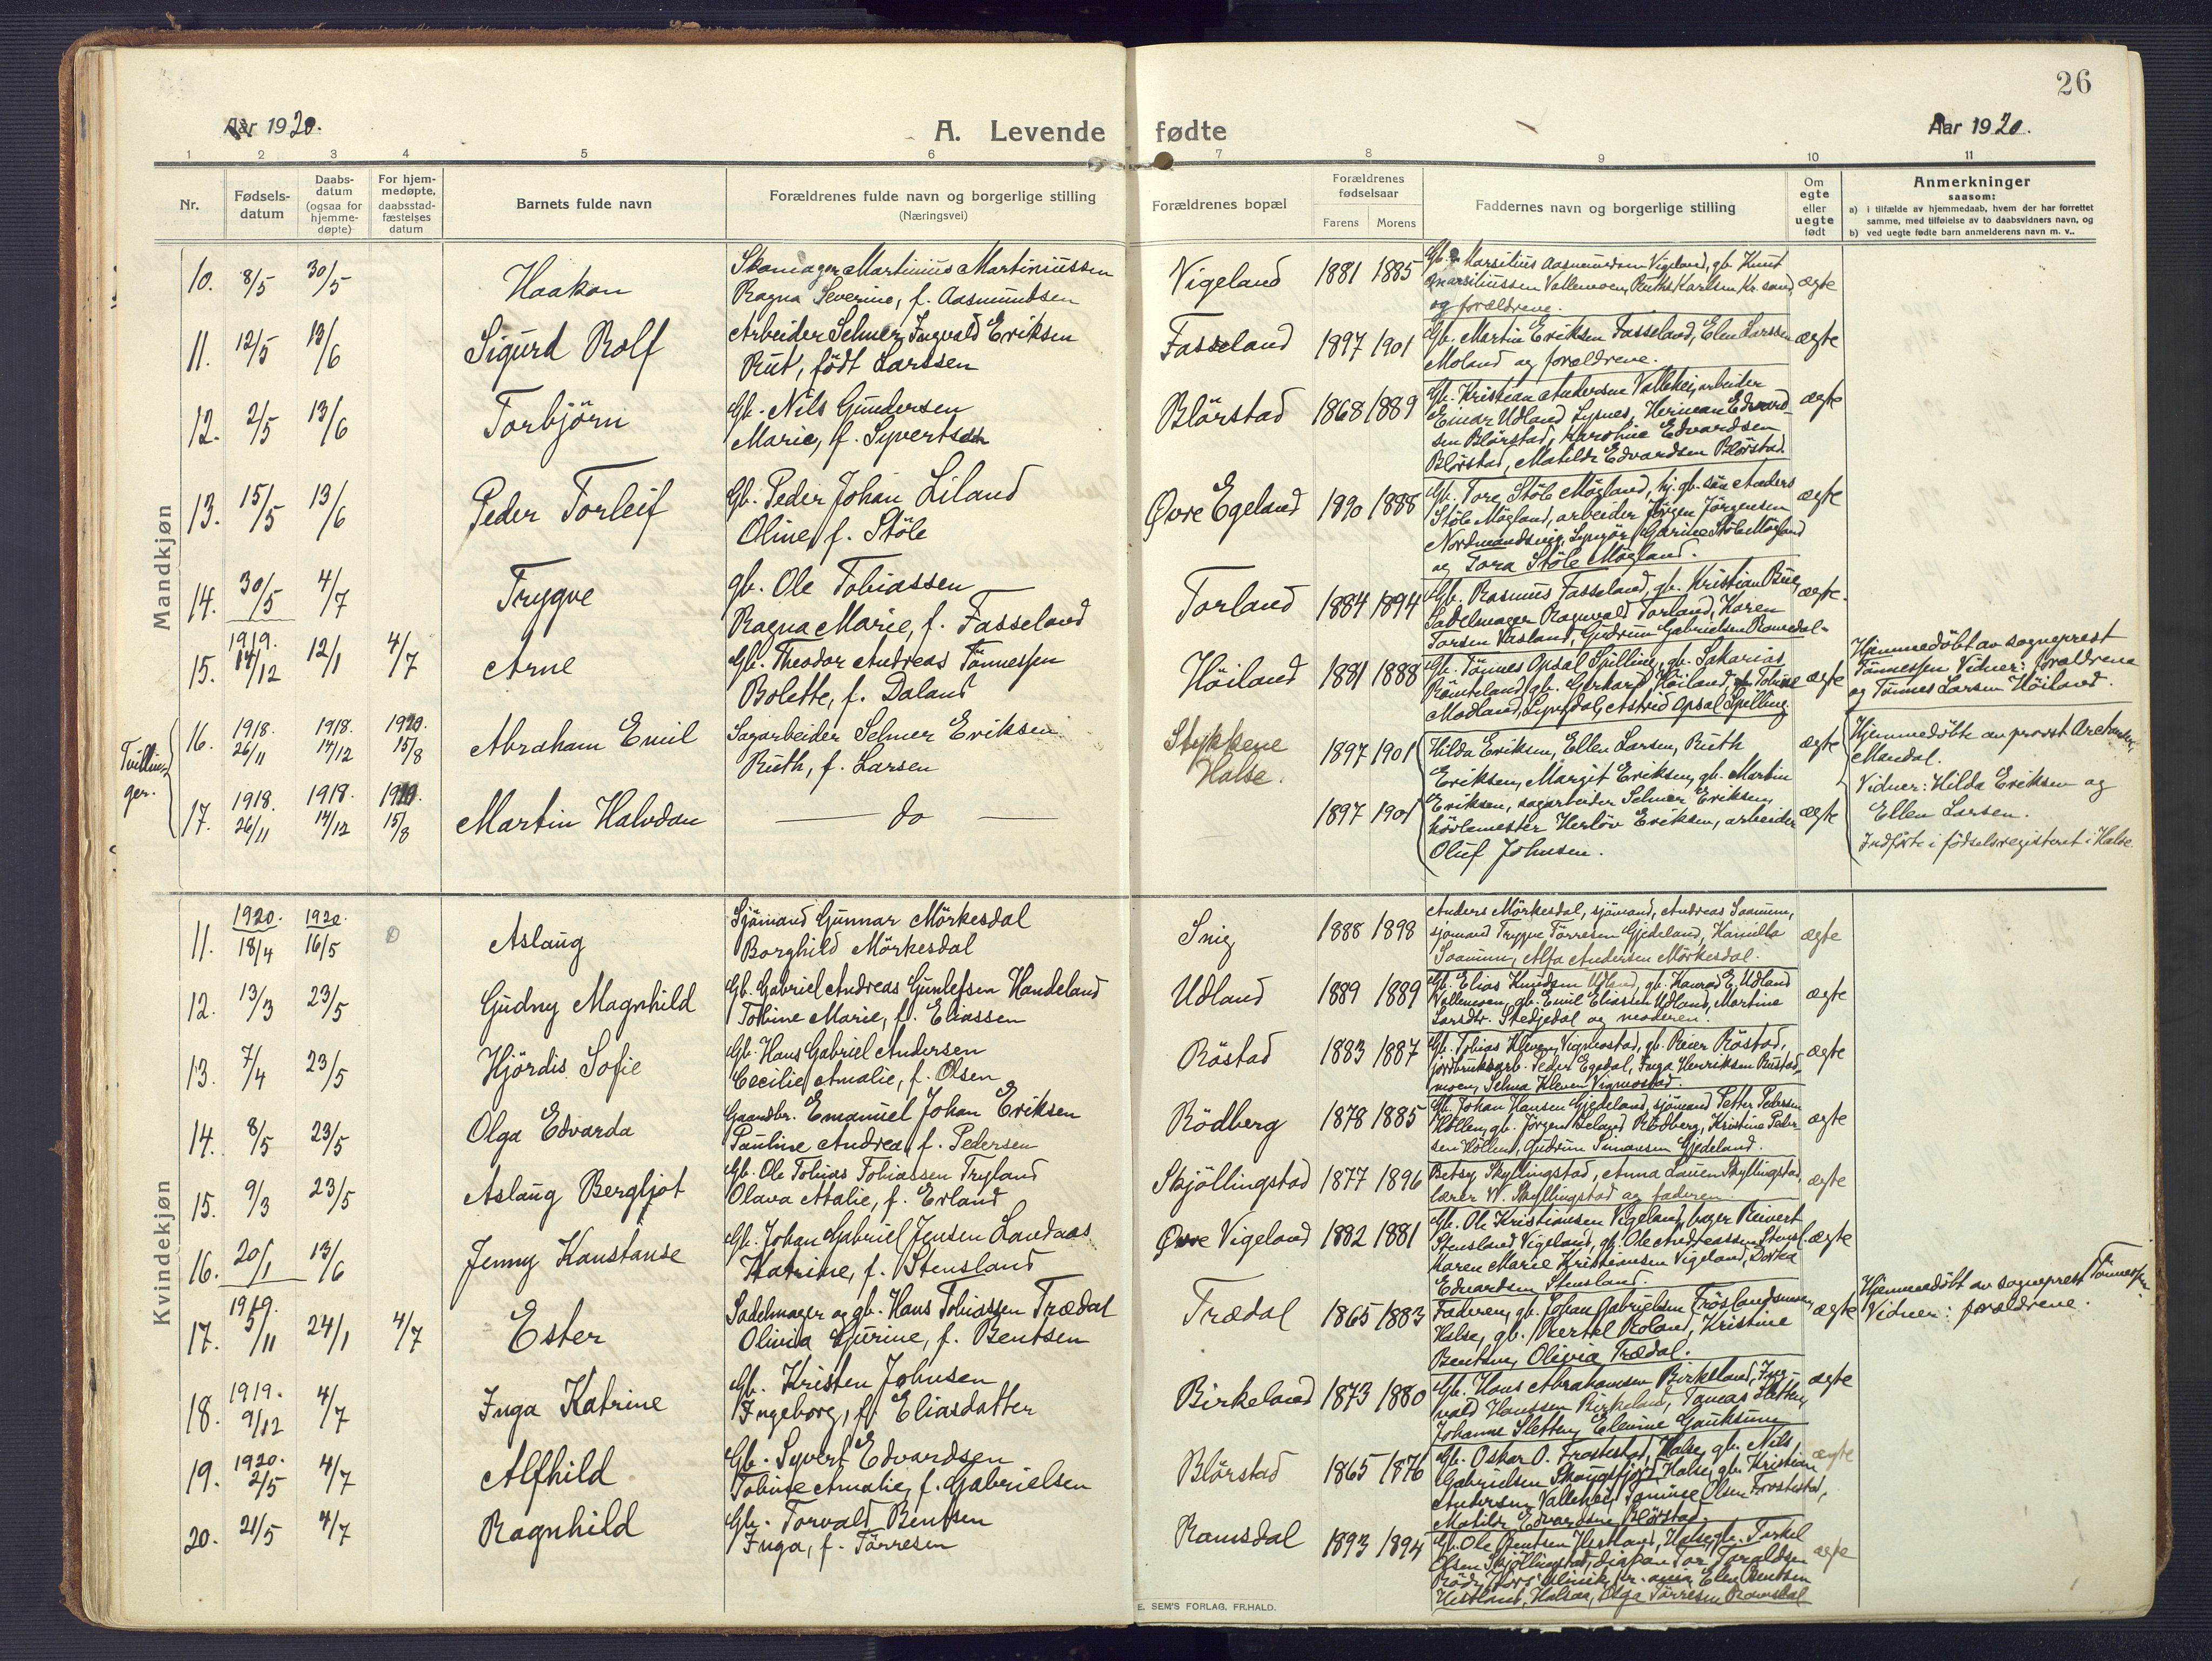 26
Aar 1920.
A. Levende fødte
Aar 1920.
1 2 3 4 5 6 7 8 9 10 11
Nr.
Fødsels-
datum
Daabs-
datum
(ogsaa for
hjemme-
døpte)
For hjem-
medøpte,
daabsstad-
fæstelses
datum
Barnets fulde navn
Forældrenes fulde navn og borgerlige stilling
(Næringsvei)
Forældrenes bopæl
Forældrenes
fødselsaar
Farens Morens
Faddernes navn og borgerlige stilling
Om
egte
eller
uegte
født
Anmerkninger
saasom:
a) i tilfælde av hjemmedaab, hvem der har forrettet
samme, med tilføielse av to daabsvidners navn, og
b) ved uegte fødte barn anmelderens navn m. v..
Mandkjøn
10. 8/5 30/5 Haakon
Skomager Martinius Martiniussen
Ragna Severine, f. Aasmundsen
Vigeland 1881 1885
Gb. Marsilius Aasmundsen Vigeland, gb. Knut
Marsiliussen Vallemoen, Ruth Karlsen Kr.sand,
og forældrene.
ægte
11. 12/5 13/6 Sigurd Rolf
Arbeider Selmer Ingvald Eriksen
Rut, født Larssen
Fasseland 1897 1901
Gb. Martin Eriksen Fasseland, Elen Larssen
Moland og forældrene.
ægte
12. 2/5 13/6 Torbjörn
Gb. Nils Gundersen
Marie, f. Syvertsen
Blörstad 1868 1889
Gb. Kristian Andersen Vallehei, arbeider
Einar Udland Lynes, Herman Edvard-
sen Blörstad, Karoline Edvardsen
Blörstad, Matilde Edvardsen Blörstad.
ægte
13. 15/5 13/6 Peder Torleif
Gb. Peder Johan Liland
Oline, f. Stöle
Øvre Egeland 1890 1888
Gb. Tore Stöle Mögland, hj. gb. sön Anders
Stöle Mögland, arbeider Jörgen Jörgensen
Nordmandsvig, Lyngör, Garine Stöle Mögland
og Tora Stöle Mögland.
ægte
14. 30/5 4/7 Trygve
gb. Ole Tobiassen
Ragna Marie, f. Fasseland
Torland 1884 1894
Gb. Rasmus Fasseland, gb. Kristian Bue,
Sadelmager Ragnvald Torland, Karen
Torsen Vasland, Gudrun Gabrielsen Ramsdal.
ægte.
15. 1919. 14/12 12/1 4/7 Arne
Gb. Theodor Andreas Tönnessen
Bolette, f. Daland
Höiland 1881 1888
Gb. Tönnes Opsal Spilling, gb. Sakarias
Römteland, gb. Gerhard Höiland, Tobine
Modland, Lyngdal, Astrid Opsal Spilling
ægte
Hjemmedöbt av sogneprest
Tönnessen Vidner: forældrene
og Tönnes Larsen Höiland.
Tvillin-
ger.
16. 1918. 26/11 1918. 14/12 1920. 15/8 Abraham Emil
Sagarbeider Selmer Eriksen
Ruth, f. Larsen
Stykkene
Halse.
1897 1901
Hilda Eriksen, Ellen Larsen, Ruth
Eriksen, Margit Eriksen, gb. Martin
Eriksen, sagarbeider Selmer Eriksen,
hövlemester Herlöv Eriksen, arbeider
Oluf Johnsen.
ægte
Hjemmedöbte av provst
Mandal.
Vidner: Hilda Eriksen og
Ellen Larsen.
Indförte i födselsregisteret i Halse.
17. 1918. 26/11 1918. 14/12 1920. 15/8 Martin Halvdan
do
1897 1901 ægte
Kvindekjøn
11. 1920. 18/4 1920. 16/5 Aslaug
Sjömand Gunnar Mörkesdal
Borghild Mörkesdal
Snig 1888 1898
Anders Mörkesdal, sjömand, Andreas Saanum,
sjömand Trygve Törresen Gjedeland, Kamilla
Saanum, Alfa Andersen Mörkesdal.
ægte
12. 13/3 23/5 Gudny Magnhild
Gb. Gabriel Andreas Gunlefsen Handeland
Tobine Marie, f. Eliassen
Udland 1889 1889
Gb. Elias Knudsen Udland, gb. Konrad E. Udland
Vallemoen, gb. Emil Eliassen Udland, Martine
Larsdtr. Stedjedal og moderen.
ægte
13. 7/4 23/5 Hjördis Sofie
Gb. Hans Gabriel Andersen
Cecilie Amalie, f. Olsen
Röstad 1883 1887
Gb. Tobias Kleven, Vigmostad, gb. Reier Röstad,
jordbruksarb. Peder Egedal, Inga Henriksen Rustad-
moen, Selma Kleven Vigmostad.
ægte
14. 8/5 23/5 Olga Edvarda
Gaardbr. Emanuel Johan Eriksen
Pauline Andrea, f. Pedersen
Rödberg 1878 1885
Gb. Johan Hansen Gjedeland, sjömand Petter Pedersen
Höllen, gb. Jörgen Leland Rödberg, Kristine Peder-
sen Höllen, Gudrun Simonsen Gjedeland.
ægte
15. 9/3 23/5 Aslaug Bergljot
Gb. Ole Tobias Tobiassen Trygland
Olava Atalie, f. Erland
Skjöllingstad 1877 1896
Betsy Skyllingstad, Anna Lauen Skyllingstad,
lærer W. Skyllingstad og faderen.
ægte
16. 20/1 13/6 Jenny Konstanse
Gb. Johan Gabriel Jensen Landaas
Katrine, f. Stensland
Øvre Vigeland 1882 1881
Gb. Ole Kristiansen Vigeland, bager Reivert
Stensland, Vigeland, gb. Ole Andreassen Stensl.
Karen Marie Kristiansen Vigeland, Dorka
Edvardsen Stensland.
ægte
17. 1919. 5/11 24/1 4/7 Ester
Sadelmager og gb. Hans Tobiassen Trædal
Olivia Gurine, f. Bentsen
Trædal 1865 1883
Faderen, gb. Johan Gabrielsen Fröslandsmoen
Halse, gb. Bertel Roland, Kristine
Bentsen, Olivia Trædal.
ægte
Hjemmedöbt av sogneprest Tönnessen.
Vidner: forældrene.
18. 1919. 9/12 4/7 Inga Katrine
Gb. Kristen Johnsen
Ingeborg, f. Eliasdatter
Birkeland 1873 1880
Gb. Hans Abrahamsen Birkeland, Ing-
vald Hanssen Birkeland, Tomas Sletten,
Johanne Sletten, Elenine
ægte
19. 1920. 2/5 4/7 Alfhild
Gb. Syvert Edvardsen
Tobine Amalie, f. Gabrielsen
Blörstad 1865 1876
Gb. Oskar O. Frostestad, Halse, gb. Nils
Gabrielsen Skougsfjord, Halse, gb. Kristian
Andersen Vallehei, Tomine Olsen Frostestad,
Matilde Edvardsen Blörstad.
ægte
20. 21/5 4/7 Ragnhild
Gb. Torvald Bentsen
Inga, f. Törresen
Ramsdal 1893 1894
Gb. Ole Bentsen Hestland, Halse, gb. Torkel
Olsen Skjöllingstad, diakon Tor Toraldsen
Elen Bentsen
Hestland, Halsaa, Olga Törresen Ramsdal
ægte
E. SEM'S FORLAG, FR.HALD.